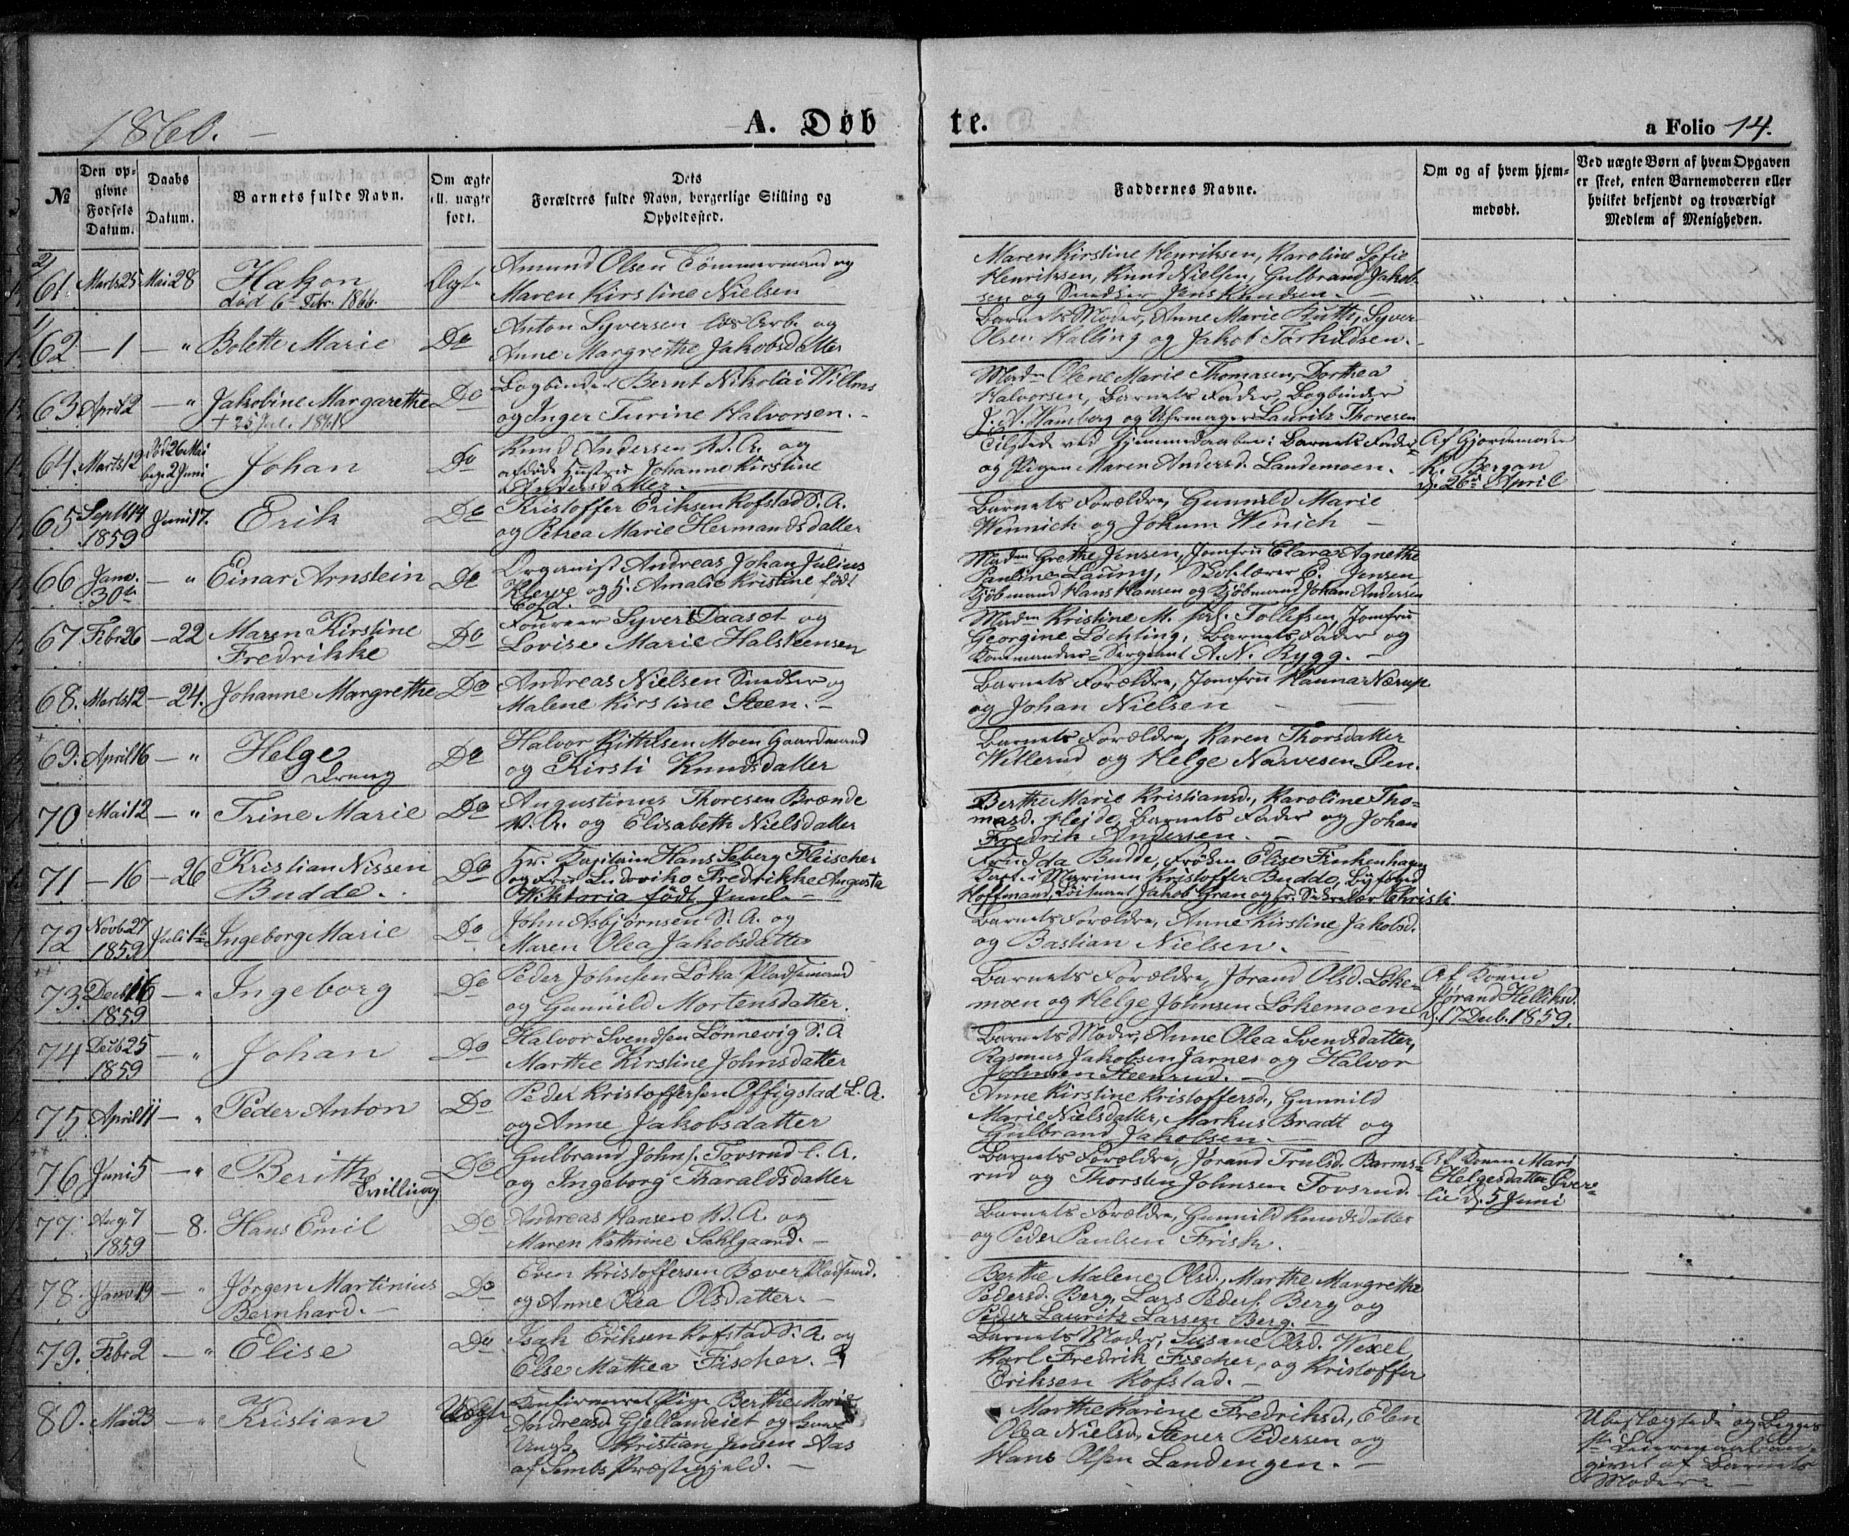 1860.
A. Døb
te.
a Folio 14.
№
Den op-
givne
Fødsels
Datum.
Daabs
Datum.
Barnets fulde Navn.
Om ægte
ell. uægte
født.
Dets
Forældres fulde Navn, borgerlige Stilling og
Opholdssted.
Faddernes Navne.
Om og af hvem hjem-
medøbt.
Ved uægte Børn af hvem Opgaven
er skeet, enten Barnemoderen eller
hvilket bekjendt og troværdigt
Medlem af Menigheden.
61. Marts 25 Mai 28 Hakon Ægt.
død 6te Febr. 1866.
Amund Olsen Tømmermand og
Maren Kirstine Nielsen
Maren Kirstine Henriksen, Karoline Sofie
Henriksen, Knud Nielsen, Gulbrand Jakob-
sen og Snedker Jens Knudsen.
62 — 1 — " Bolette Marie Do
Anton Syversen løs Arb. og
Anne Margrethe Jakobsdatter
Barnets Moder, Anne Marie Syver
Olsen Halling og Jakob Torkildsen.
63 April 2 — " Jakobine Margarethe Do
Bogbinder Bernt Nikolai Wilms
og Inger Turine Halvorsen.
Madm Olene Marie Thomasen, Dorthea
Halvorsen, Barnets Fader, Bogbinder
J. A. Hamborg og Uhrmager Lauritz Thoresen
64. Marts 12 Død 26 Mai
begr. 2 Juni Johan Do
Knud Andersen B. A. og
afdøde Hustru Johanne Kirstine
Andersdatter.
Tilstede ved Hjemmedaaben: Barnets Fader
og Pigen Maren Andersd. Landemoen.
Af Gjordemoder
K. Bergan
d. 26de April
65 Septb 14
1859 Juni 17. Erik Do
Kristoffer Eriksen Kofstad S. A.
og Petrea Marie Hermandsdatter
Barnets Forældre, Gunnild Marie
Wennich og Jokum Wenich —
66 Janr.
30te — " Einar Arnstein Do
Organist Andreas Johan Julius
Klewe og H. Amalie Kristine født
Madm Grethe Jensen, Jomfru Clara Agnethe
Pauline Launy, Skolelærer C. Jensen,
Kjøbmand Hans Hansen og Kjøbmand Johan Andersen
67 Febr 26 — 22 Maren Kirstine
Fredrikke Do
Foureer Syver Daasæt og
Lovise Marie Halsteensen
Madm Kristine M. Tollefsen, Jomfru
Georgine Løchting, Barnets Fader og
Kommandeer-Sergeant A. N. Rygg. —
68. Marts 12 — 24. Johanne Margrethe Do
Andreas Nielsen Snedker og
Malene Kirstine Steen. —
Barnets Forældre, Jomfru Hanna Nærup
og Johan Nielsen
69. April 16 — " Helge
Dreng Do
Halvor Kittilsen Moen Gaardmand
og Kirsti Knudsdatter
Barnets Forældre, Karen Thorsdatter
Willerud og Helge Narvesen Øen.
70 Mai 12 — " Trine Marie Do
Augustinus Thoresen Brænde
B. A. og Elisabeth Nielsdatter
Berthe Marie Kristiansd., Karoline Tho-
masd. Hejde, Barnets Fader og Johan
Fredrik Andersen. —
71 — 16 — 26 Kristian Nissen
Budde. Do
Hr. Kapitain Hans Seberg Fleischer
og Fru Ludovika Fredrikke Augusta
Wiktoria født Juul. —
Fru Ida Budde, Frøken Elise Finkenhagen
Capt. i Marinen Kristoffer Budde, Byfoged
Hoffmand, Løitnant Jakob Gran og Hr. Sekretær Christi
72 Novb 27
1859 Juli 1te Ingeborg Marie Do
John Asbjørnsen S. A. og
Maren Olea Jakobsdatter
Barnets Forældre, Anne Kirstine Jakobsd.
og Bastian Nielsen. —
73 Decb 16
1859 — " Ingeborg Do
Peder Johnsen Løka Pladsmand
og Gunnild Mortensdatter.
Barnets Forældre, Jørand Olsd. Løke-
moen og Helge Johnsen Løkemoen
Af Konen
Jørand Helliksd.
d. 17 Decb. 1859.
74 Decb 25
1859 — " Johan Do
Halvor Svendsen Lønnevig S. A
Marthe Kirstine Johnsdatter
Barnets Moder, Anne Olea Svendsdatter,
Rasmus Jakobsen Jarnes og Halvor
Johnsen Steenrud. —
75 April 11 — " Peder Anton Do
Peder Kristoffersen Offigstad L. A.
og Anne Jakobsdatter
Anne Kirstine Kristoffersd., Gunnild
Marie Nielsdatter, Markus Bradt og
Gulbrand Jakobsen. —
76 Juni 5 — " Berith
Tvilling Do
Gulbrand Johns. Tovsrud L. A.
og Ingeborg Tharaldsdatter
Barnets Forældre, Jørand Trulsd. Barms-
rud og Thorsten Johnsen Tovsrud.
Af Konen Mari
Helgesdatter Øver-
lie d. 5 Juni
77 Aug. 7
1859 — 8. Hans Emil Do
Andreas Hansen B. A. og
Maren Kathrine Sahlgaard. —
Barnets Forældre, Gunnild Knudsdatter
og Peder Paulsen Frisk.
78. Janr 19 — " Jørgen Martinius
Bernhard. — Do
Even Kristoffersen Bæver Pladsmd.
og Anne Olea Olsdatter. —
Berthe Malene Olsd., Marthe Margrethe
Pedersd. Berg, Lars Peders. Berg og
Peder Lauritz Larsen Berg. —
79. Febr 2 — " Elise Do
Isak Eriksen Kofstad S. A. og
Else Mathea Fischer.
Barnets Moder, Susane Olsd. Wexel,
Karl Fredrik Fischer, og Kristoffer
Eriksen Kofstad. —
80. Mai 23 — " Kristian Uægt.
Konfirmeret Pige Berthe Marie
Andreasd. Gjellandeiet og
Ungk. Kristian Jensen Aas
af Sembs Præstegjeld. —
Marthe Karine Fredriksd., Elen
Olea Nielsd., Stener Pedersen og
Hans Olsen Landengen. —
Ubeslægtede og Begges
1ste Leiermaal an-
givet af Barnets
Moder